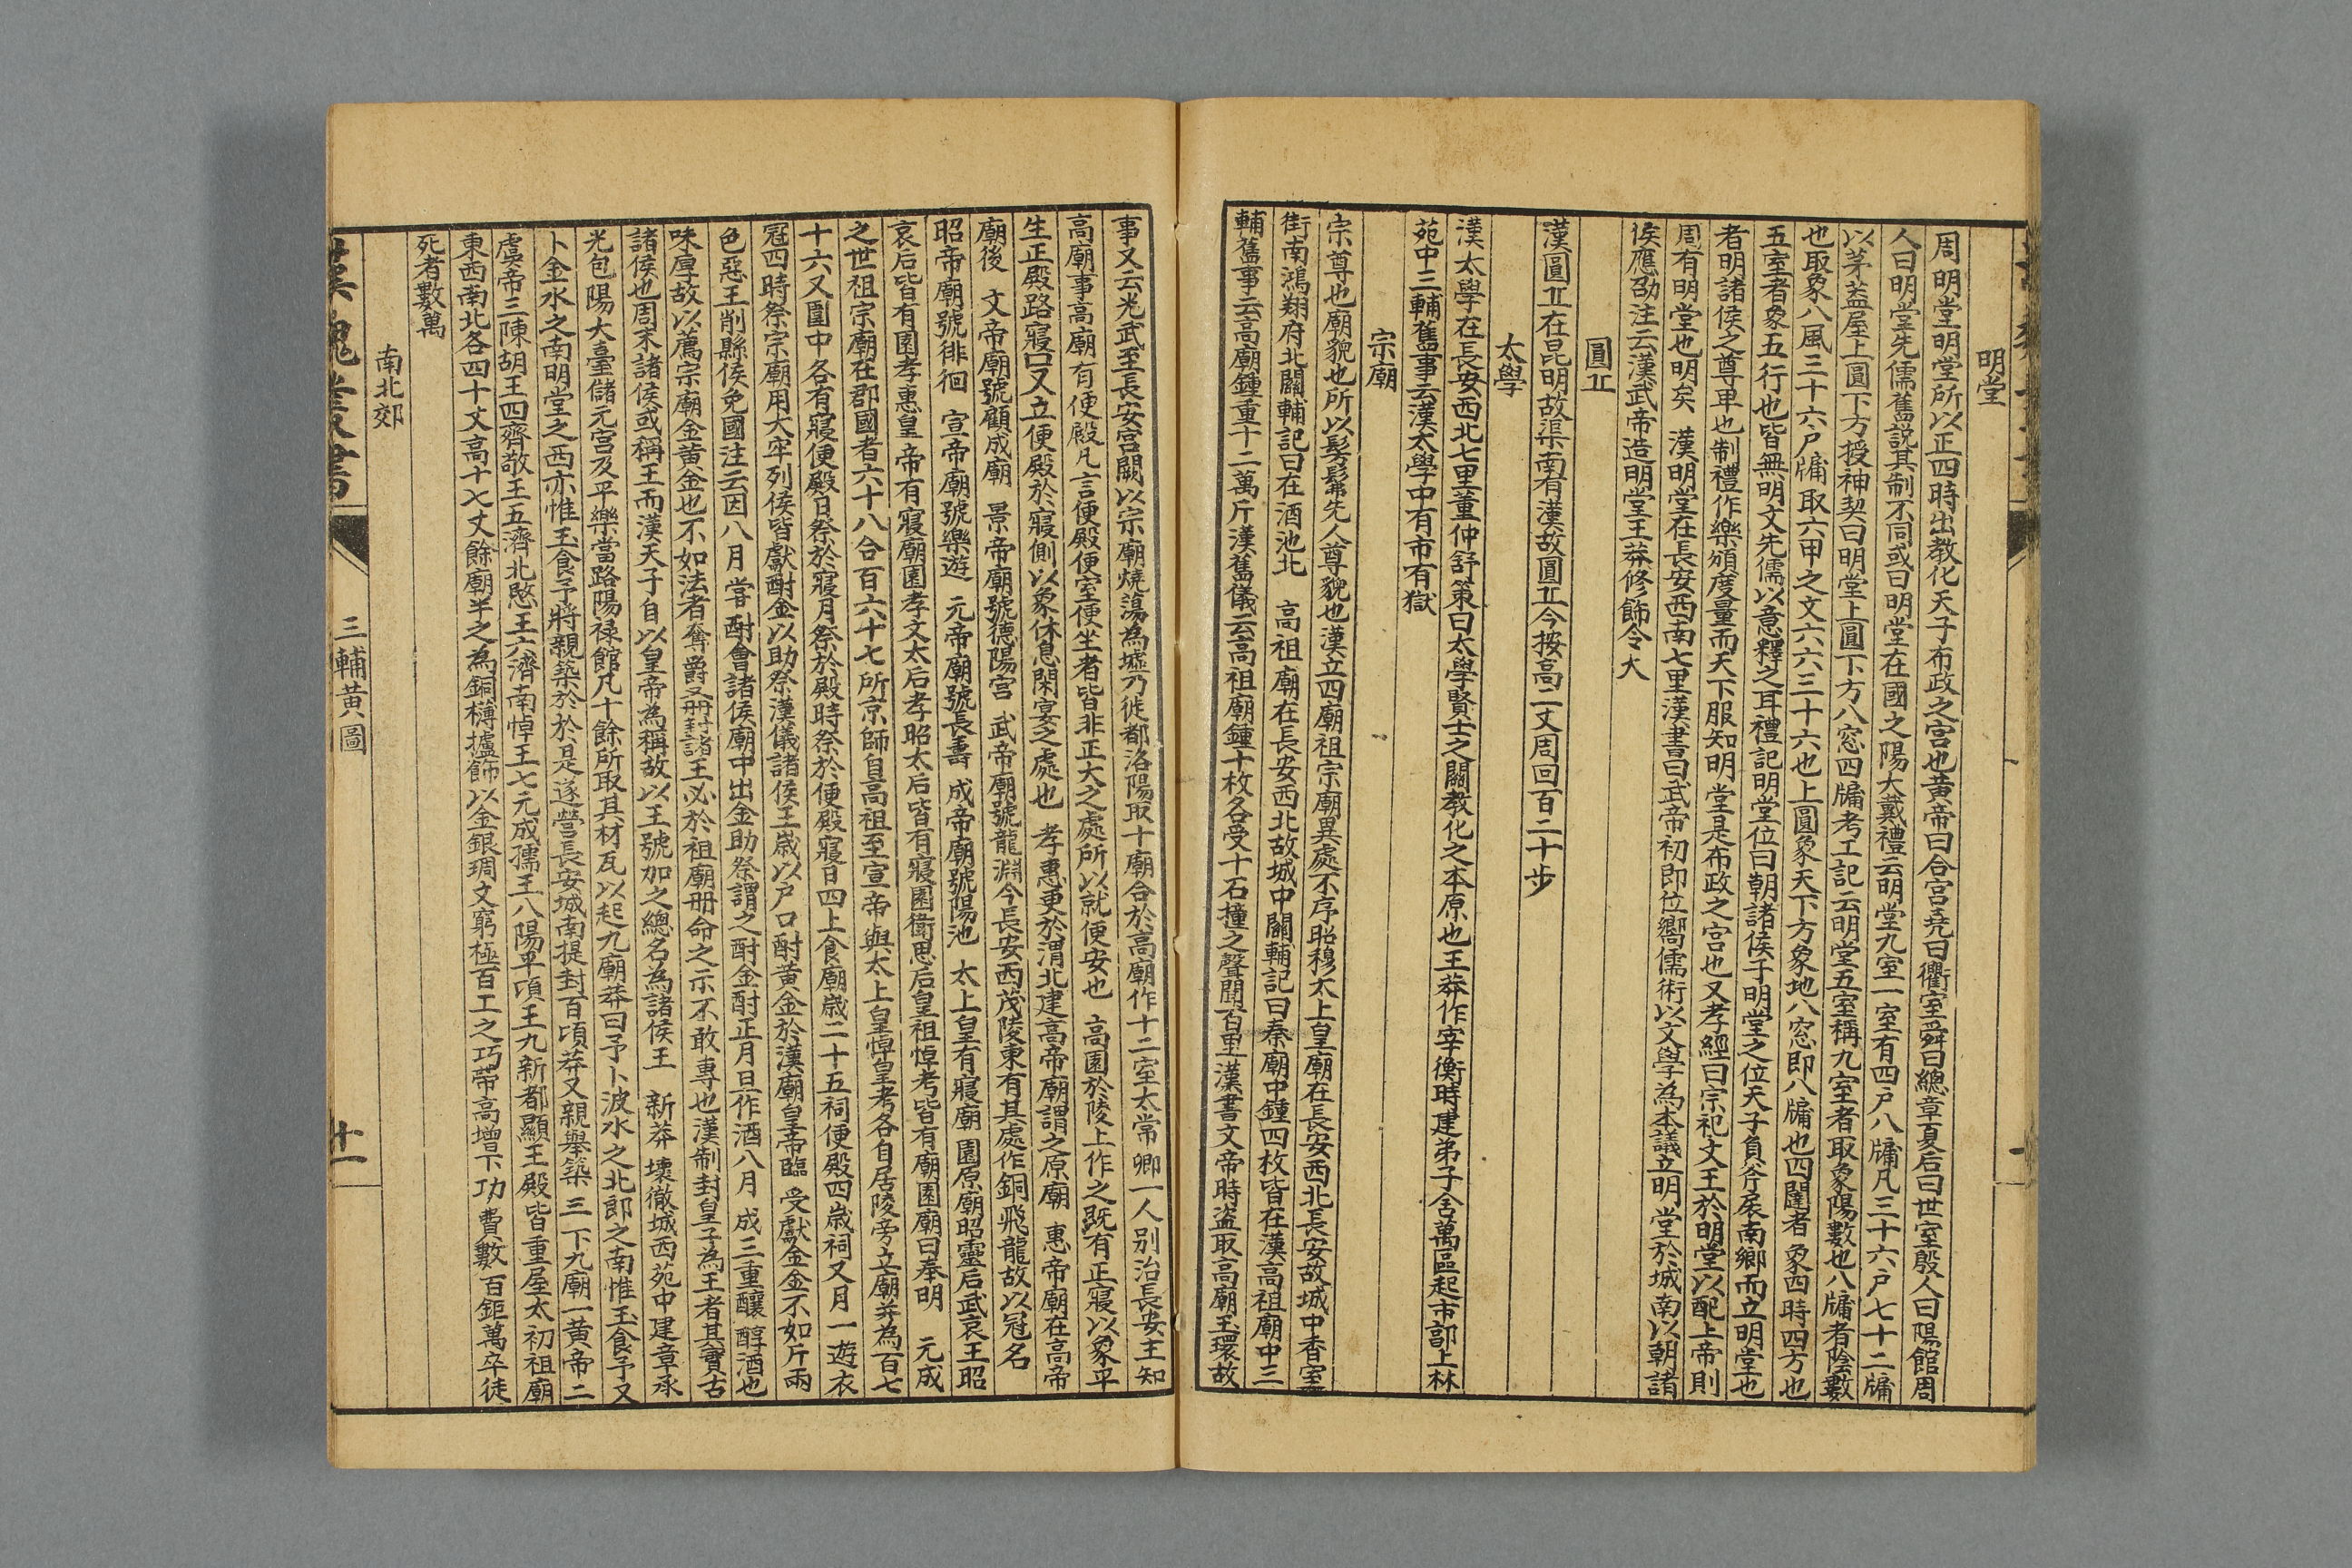 明堂
周明堂明堂所以正四時出教化天子布政之宮也黄帝曰合宮堯曰衢室舜曰總章夏后曰世室殷人曰陽館周
人曰明堂先儒舊説其制不同或曰明堂在國之陽大戴禮云明堂九室一室有四戸八牖凡三十六戸七十二牖
以茅蓋屋上圓下方授神契曰明堂上圓下方八窓四牖考工記云明堂五室稱九室者取象陽數也八牖者陰數
也取象八風三十六戸牖取六甲之文六六三十六也上圓象天下方象地八窓即八牖也四闥者象四時四方也
五室者象五行也皆無明文先儒以意釋之耳禮記明堂位曰朝諸侯于明堂之位天子負斧扆南鄉而立明堂也
者明諸侯之尊卑也制禮作樂頒度量而天下服知明堂是布政之宮也又孝經曰宗祀文王於明堂以配上帝則
周有明堂也明矣 漢明堂在長安西南七里漢書曰武帝初即位嚮儒術以文學為本議立明堂於城南以朝諸
侯應劭注云漢武帝造明堂王莽修飾令大
圓丘
漢圓丘在昆明故渠南有漢故圓丘今按高二丈周回百二十步
太學
漢太學在長安西北七里董仲舒策曰太學賢士之關教化之本原也王莽作宰衡時建弟子舍萬區起市郭上林
苑中三輔舊事云漢太學中有市有獄
宗廟
宗尊也廟貌也所以髣髴先人尊貌也漢立四廟祖宗廟異處不序昭穆太上皇廟在長安西北長安故城中香室
街南鴻翔府北關輔記曰在酒池北 高祖廟在長安西北故城中關輔記曰秦廟中鍾四枚皆在漢高祖廟中三
輔舊事云高廟鍾重十二萬斤漢舊儀云高祖廟鍾十枚各受十石撞之聲聞百里漢書文帝時盜取高廟玉環故
事又云光武至長安宮闕以宗廟燒蕩為墟乃徙都洛陽取十廟合於高廟作十二室太常卿一人别治長安主知
高廟事高廟有便殿凡言便殿便室便坐者皆非正大之處所以就便安也 高園於陵上作之既有正寢以象平
生正殿路寢又立便殿於寢側以象休息閑宴之處也 孝惠更於渭北建高帝廟謂之原廟 惠帝廟在高帝
廟後 文帝廟號顧成廟 景帝廟號德陽宮 武帝廟號龍淵今長安西茂陵東有其處作銅飛龍故以冠名
昭帝廟號徘徊 宣帝廟號樂遊 元帝廟號長壽 成帝廟號陽池 太上皇有寢廟園原廟昭靈后武哀王昭
哀后皆有園孝惠皇帝有寢廟園孝文太后孝昭太后皆有寢園衛思后皇祖悼考皆有廟園廟曰奉明 元成
之世祖宗廟在郡國者六十八合百六十七所京師自高祖至宣帝與太上皇悼皇考各自居陵旁立廟并為百七
十六又園中各有寢便殿日祭於寢月祭於殿時祭於便殿寢日四上食廟歲二十五祠便殿四歲祠又月一遊衣
冠四時祭宗廟用大牢列侯皆獻酎金以助祭漢儀諸侯王歲以戸口酎黄金於漢廟皇帝臨受獻金金不如斤兩
色惡王削縣侯免國注云因八月嘗酎會諸侯廟中出金助祭謂之酎金酎正月旦作酒八月成三重釀醇酒也
味厚故以薦宗廟金黄金也不如法者奪爵又册封諸王必於祖廟册命之示不敢專也漢制封皇子為王者其實古
諸侯也周末諸侯或稱王而漢天子自以皇帝為稱故以王號加之總名為諸侯王 新莽壞徹城西苑中建章承
光包陽大臺儲元宮及平樂當路陽禄館凡十餘所取其材瓦以起九廟莽曰予卜波水之北郎之南惟玉食予又
卜金水之南明堂之西亦惟玉食予將親築於於是遂營長安城南提封百頃莽又親舉築三下九廟一黄帝二
虞帝三陳胡王四齊敬王五濟北愍王六濟南悼王七元成孺王八陽平頃王九新都顯王殿皆重屋太初祖廟
東西南北各四十丈高十七丈餘廟半之為銅欂櫨飾以金銀琱文窮極百工之巧帶高增下功費數百鉅萬卒徒
死者數萬
南北郊
三輔黄圖
十一